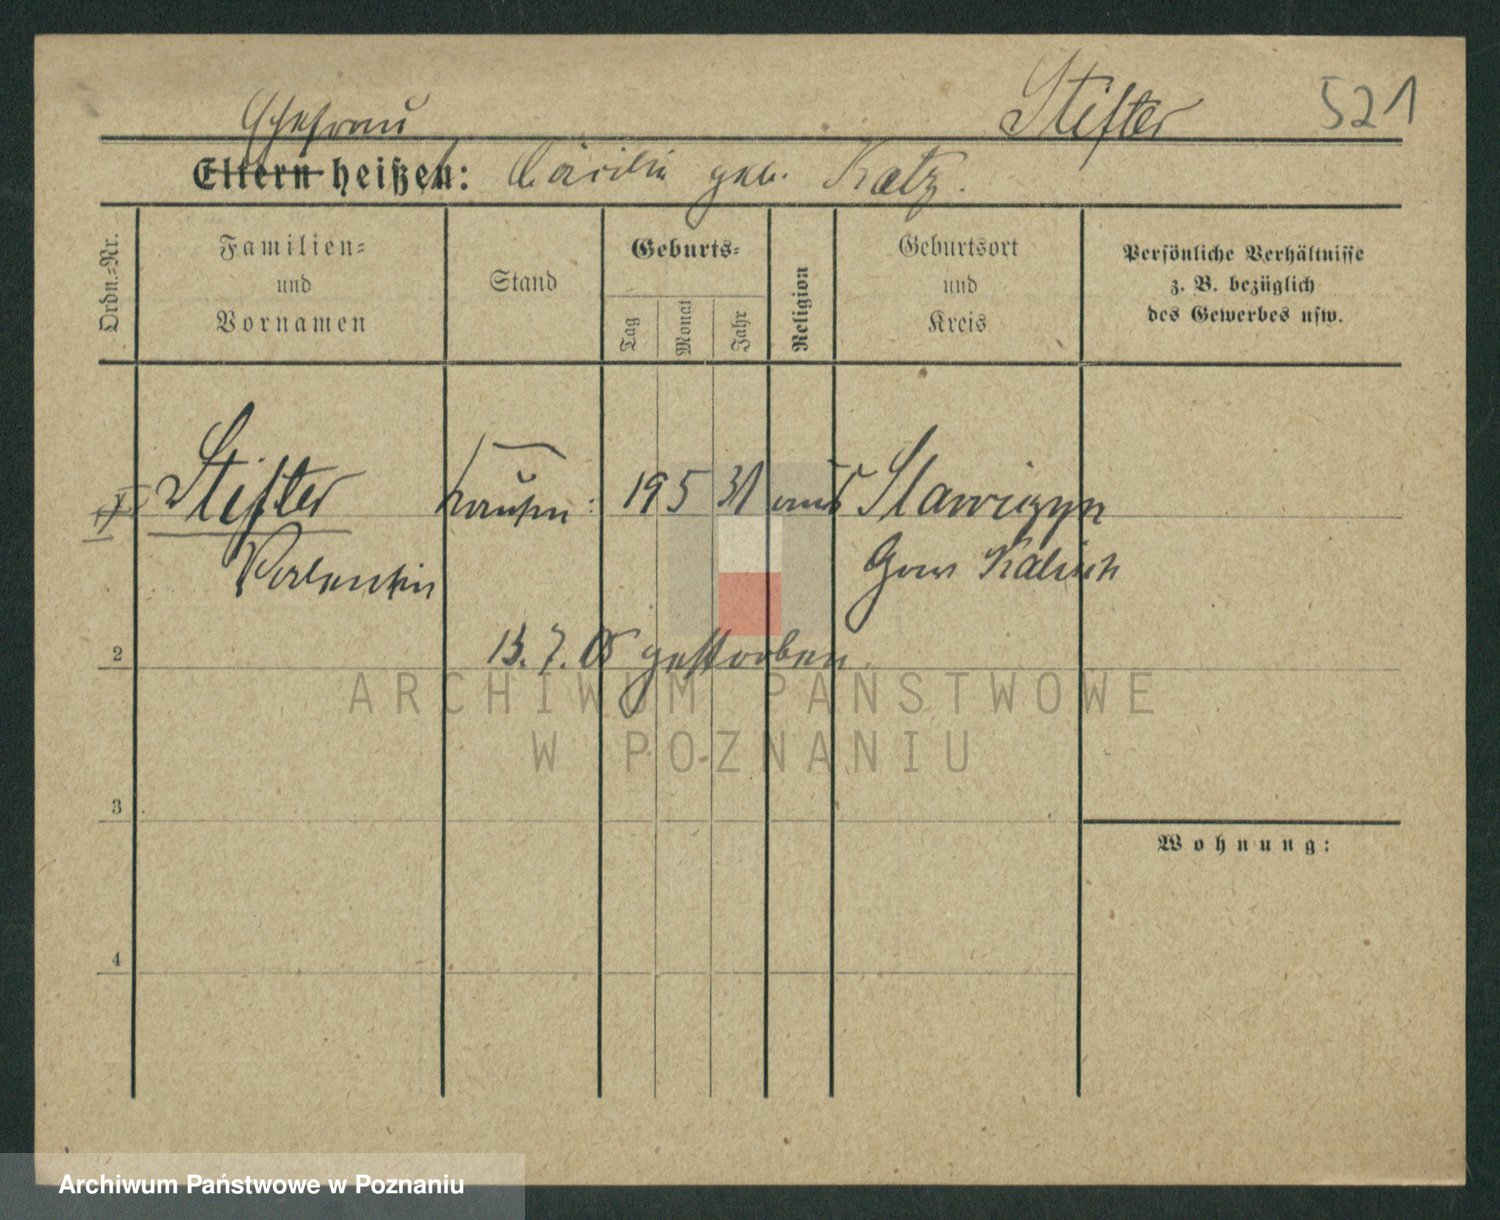 Stifter 521
Ehefrau
Eltern heißen: Cäcilie geb. Katz.
Ordn.=Nr.
Familien=
und
Vornamen
Stand
Geburts=
Tag
Monat
Jahr
Religion
Geburtsort
und
Kreis
Persönliche Verhältnisse
z. B. bezüglich
des Gewerbes usw.
Stifter 19 5 31 aus
Valentin Gouv Kalisch
2
gestorben.
3
Wohnung:
4
ARCHIWUM PAŃSTWOWE
W POZNANIU
Archiwum Państwowe w Poznaniu